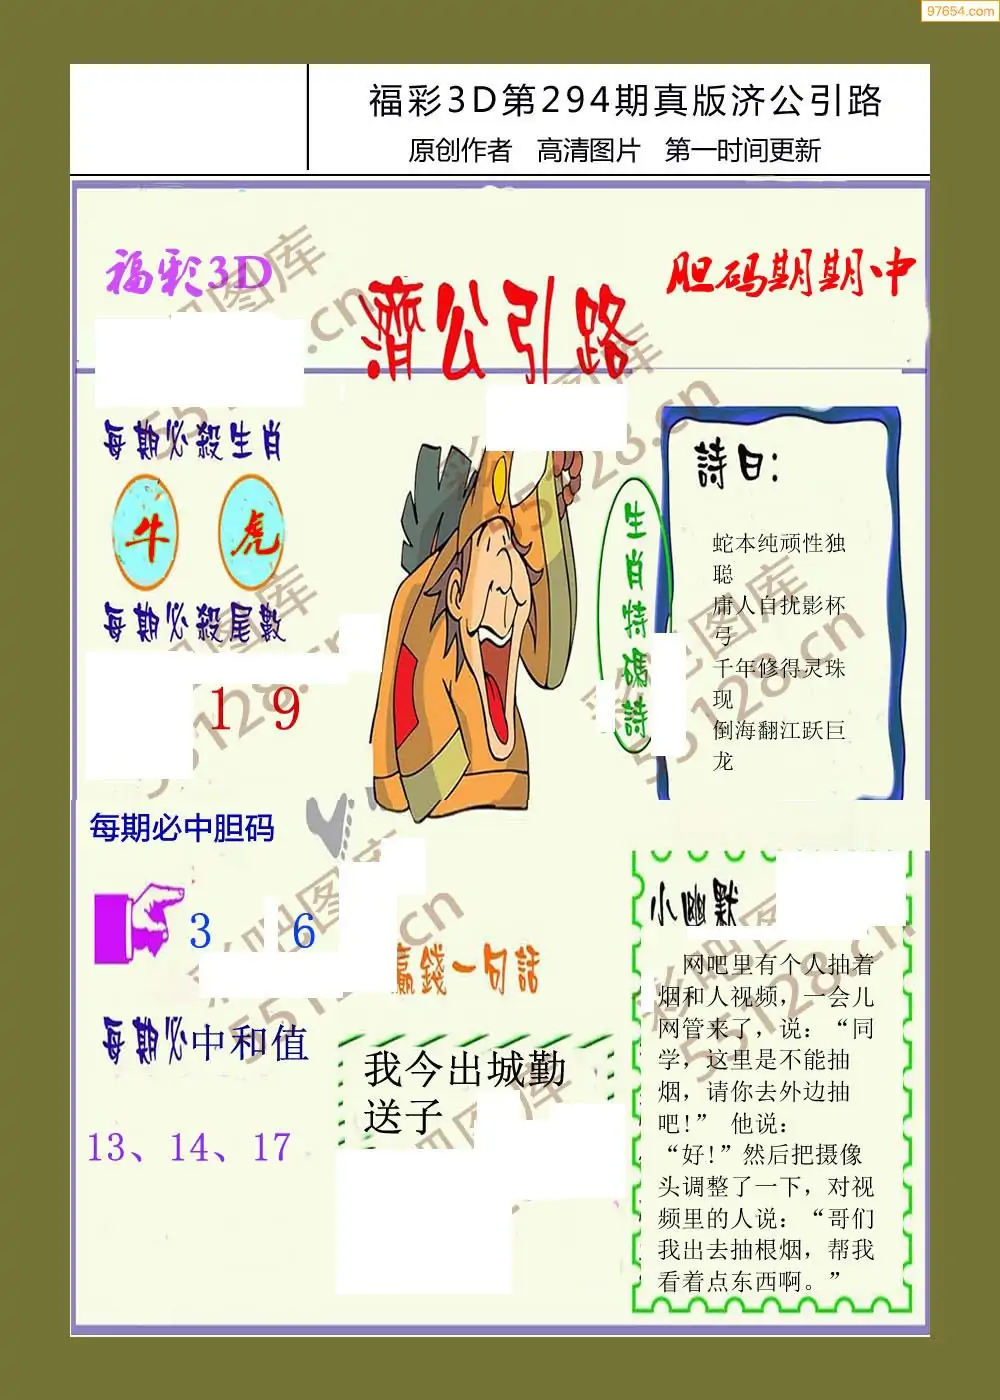 97654.com
福彩3D第294期真版济公引路
原创作者 高清图片 第一时间更新
福彩3D
濟公引路
胆码期期中
每期必殺生肖
牛 虎
每期必殺尾數
1 9
每期必中胆码
3 6
每期必中和值
13、14、17
生肖特碼詩
詩曰：
蛇本纯顽性独
聪
庸人自扰影杯
弓
千年修得灵珠
现
倒海翻江跃巨
龙
贏錢一句話
我今出城勤
送子
小幽默
网吧里有个人抽着
烟和人视频，一会儿
网管来了，说：“同
学，这里是不能抽
烟，请你去外边抽
吧！” 他说：
“好！”然后把摄像
头调整了一下，对视
频里的人说：“哥们
我出去抽根烟，帮我
看着点东西啊。”
彩吧图库
55128.cn